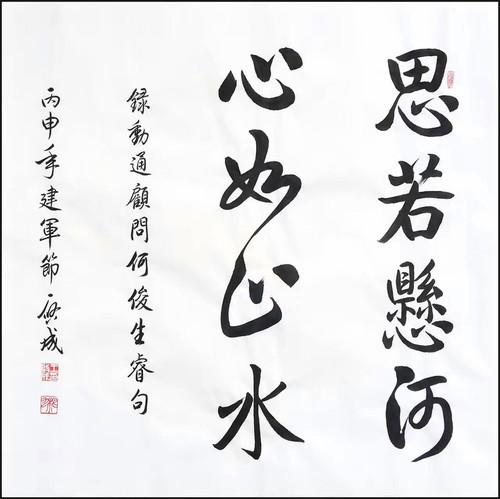 思若懸河
心如止水
錄動通顧問何俊生睿句
丙申年建軍節啟成